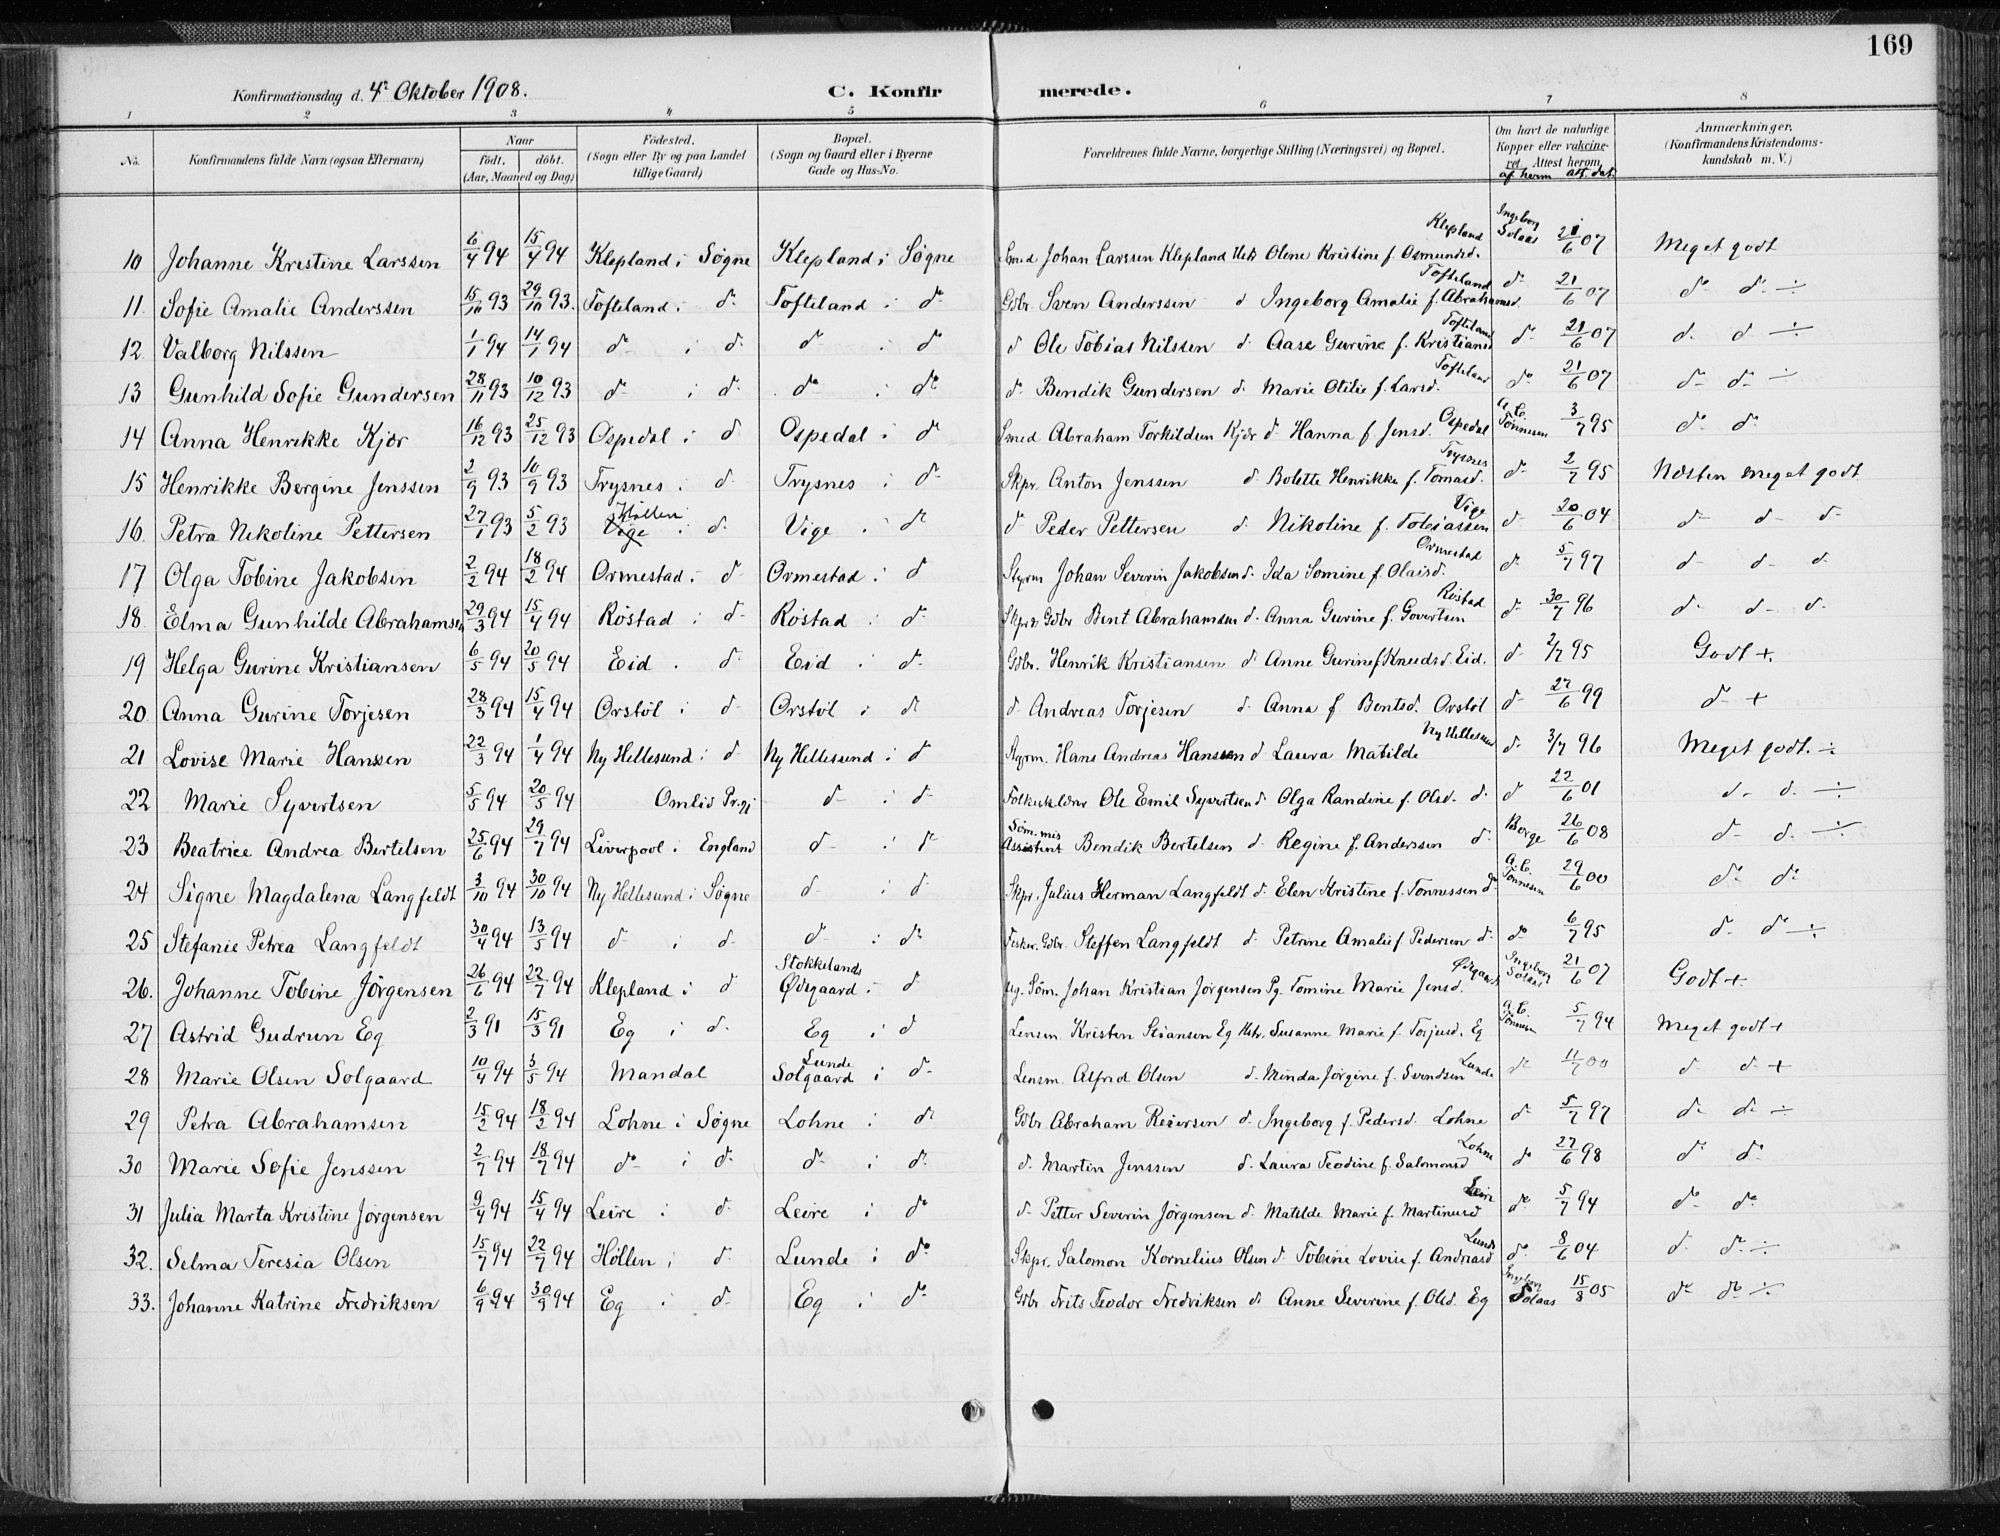 169
Konfirmationsdag d. 4de Oktober 1908. C. Konfirmerede.
1 2 3 4 5 6 7 8
No. Konfirmandens fulde Navn (ogsaa Efternavn) Naar födt. döbt. (Aar, Maaned og Dag) Födested. (Sogn eller By og paa Landet tillige Gaard) Bopæl. (Sogn og Gaard eller i Byerne Gade og Hus-No. Forældrenes fulde Navne, borgerlige Stilling (Næringsvei) og Bopæl. Om havt de naturlige Kopper eller vakcineret. Attest herom af hvem att. dat. Anmærkninger. (Konfirmandens Kristendomskundskab m. V.)
10 Johanne Kristine Larssen 6/4 94 15/4 94 Klepland i Søgne Klepland i Søgne Smed Johan Larssen Klepland Hstr Olene Kristine f. Osmundsd. Klepland Ingeborg Solaas 21/6 07 Meget godt
11 Sofie Amalie Anderssen 15/10 93 29/10 93. Tofteland i do Tofteland i do Gdbr. Sven Anderssen do Ingeborg Amalie f. Abrahamsd. Tofteland do 21/6 07 do do ÷
12 Valborg Nilssen 1/1 94 14/1 94 do i do do i do do Ole Tobias Nilssen do Aase Gurine f. Kristiansd Tofteland do 21/6 07 do do ÷
13 Gunhild Sofie Gundersen 28/11 93 10/12 93 do i do do i do do Bendik Gundersen do Marie Otilie f. Larsd. Tofteland do 21/6 07 do do ÷
14 Anna Henrikke Kjær 16/12 93 25/12 93 Ospedal i do Ospedal i do Smed Abraham Torkildsen Kjær do Hanna f. Jensd. Ospedal A. C. Tønnesen 3/7 95 do do
15 Henrikke Bergine Jenssen 2/9 93 10/9 93 Trysnes i do Trysnes i do Skpr. Anton Jenssen do Bolette Henrikke f. Tomasd. Trysnes do 2/7 95 Næsten meget godt
16. Petra Nikoline Pettersen 27/1 93 5/2 93 Vige Høllen i do Vige i do do Peder Pettersen do Nikoline f. Tobiassen Vige do 20/6 04 do do do
17 Olga Tobine Jakobsen 2/2 94 18/2 94 Ormestad i do Ormestad i do Styrm Johan Severin Jakobsen do Ida Somine f. Olaisd. Ormestad do 5/7 97 do do do
18. Elma Gunhilde Abrahamsen 29/3 94 15/4 94 Røstad i do Røstad i do Skpr & Gdbr Bent Abrahamsen do Anna Gurine f. Govertsen Røstad do 30/7 96 do do do
19 Helga Gurine Kristiansen 6/5 94 20/5 94 Eid i do Eid i do Gdbr. Henrik Kristiansen do Anne Gurine f Knudsd. Eid. do 2/7 95 Godt +.
20. Anna Gurine Torjesen 28/3 94 15/4 94 Orstøl i do Orstøl i do do Andreas Torjesen do Anna f Bentsd. Orstøl do 27/6 99 do +
21 Lovise Marie Hanssen 22/3 94 1/4 94 Ny Hellesund i do Ny Hellesund i do Styrm. Hans Andreas Hanssen do Laura Matilde Ny Hellesund do 3/7 96 Meget godt. ÷
22 Marie Syvertsen 5/5 94 20/5 94 Omlid Pr.gj do i do Folkesklærer Ole Emil Syvertsen do Olga Randine f. Olsd. do do 22/6 01 do do ÷
23 Beatrice Andrea Bertelsen 25/6 94 29/7 94 Liverpool i England do i do Søm. mis Assistent Bendik Bertelsen do Regine f. Anderssen do Borge 26/6 08 do do ÷
24 Signe Magdalena Langfeldt 3/10 94 30/10 94 Ny Hellesund i Søgne do i do Skpr. Julius Herman Langfeldt do Elen Kristine f. Tønnessen do A. C. Tønnesen 29/6 00 do do
25 Stefanie Petrea Langfeldt 30/4 94 13/5 94 do i do do i do Fisker. Gdbr. Steffen Langfeldt do Petrine Amalie f Pedersen do do 6/7 95 do do ÷
26. Johanne Tobine Jørgensen 26/6 94 22/7 94 Klepland i do Stokkelands Ødegaard i do ug. Søm. Johan Kristian Jørgensen Pg. Tomine Marie Jensd. Ødegaard Ingeborg Solaas 21/6 07 Godt +
27 Astrid Gudrun Eg 2/3 91 15/3 91 Eg i do Eg i do Lensm. Kristen Stiansen Eg Hstr. Susanne Marie f. Torjusd. Eg A. C. Tønnesen 5/7 94 Meget godt +
28 Marie Olsen Solgaard 10/4 94 3/5 94 Mandal Lunde Solgaard i do Lensm. Alfred Olsen do Minda Jørgine f. Svendsen Lunde do 11/7 00 do do +
29 Petra Abrahamsen 15/2 94 18/2 94 Lohne i Søgne Lohne i do Gdbr. Abraham Reiersen do Ingeborg f. Pedersd. Lohne do 5/7 97 do do ÷
30 Marie Sofie Jenssen 2/7 94 18/7 94 do i do do i do do Martin Jenssen do Laura Teodine f. Salomonsd Lohne do 27/6 98 do do
31 Julia Marta Kristine Jørgensen 9/4 94 15/4 94 Leire i do Leire i do do Petter Severin Jørgensen do Matilde Marie f. Martinusd Leire do 5/7 94 do do
32. Selma Teresia Olsen 15/7 94 22/7 94 Høllen i do Lunde i do Skpr. Salomon Kornelius Olsen do Tobine Lovise f. Andreasd Lunde do 8/6 04 do do ÷
33. Johanne Katrine Fredriksen 6/9 94 30/9 94 Eg i do Eg i do Gdbr. Frits Teodor Fredriksen do Anne Severine f. Olsd. Eg Ingeborg Solaas 15/8 05 do do ÷